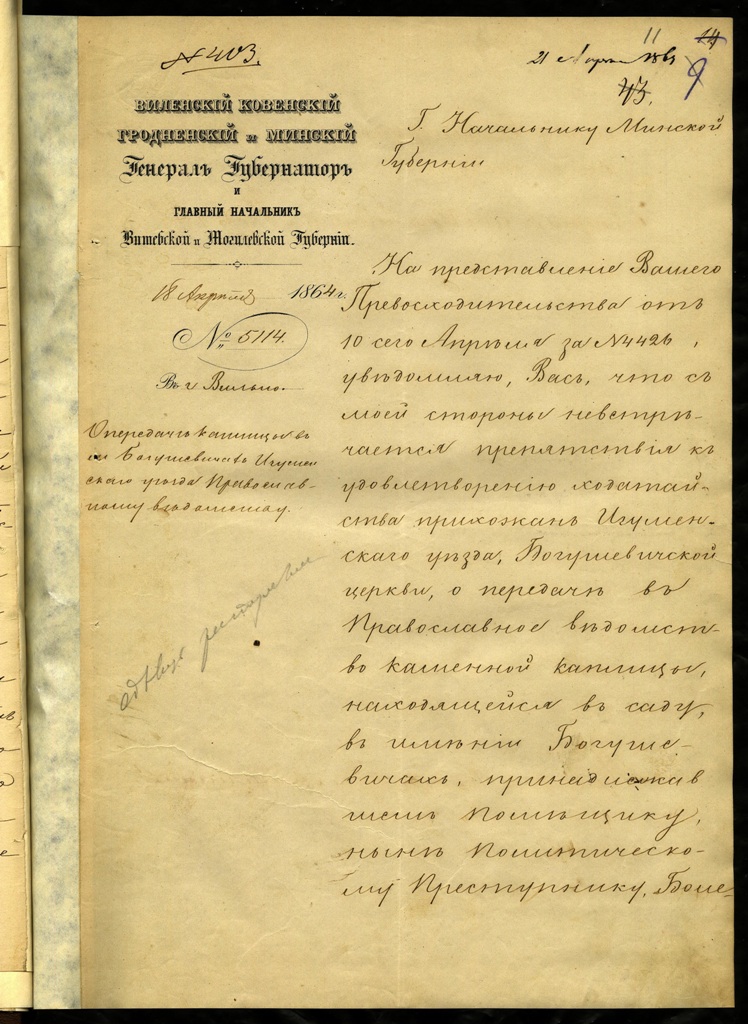 № 403.
11 14
21 Апрѣля 1864
43. 9
ВИЛЕНСКІЙ КОВЕНСКІЙ
ГРОДНЕНСКІЙ и МИНСКІЙ
Генералъ Губернаторъ
и
ГЛАВНЫЙ НАЧАЛЬНИКЪ
Витебской и Могилевской Губерніи.
18 Апрѣля 1864 г.
№ 5114.
Въ г. Вильно.
О передачѣ каплицы въ
им. Богушевичахъ Игумен
скаго уѣзда Православ-
ному вѣдомству.
Г. Начальнику Минской
Губерніи
На представленіе Вашего
Превосходительства отъ
10 сего Апрѣля за № 4426,
увѣдомляю, Васъ, что съ
моей стороны невстрѣ-
чается препятствія къ
удовлетворенію ходатай-
ства прихожанъ Игумен-
скаго уѣзда, Богушевичской
церкви, о передачѣ въ
Православное вѣдомст-
во каменной каплицы,
находящейся въ саду,
въ имѣніи Богуше-
вичахъ, принадлежав
шемъ помѣщику,
нынѣ политическо-
му Преступнику, Боле-